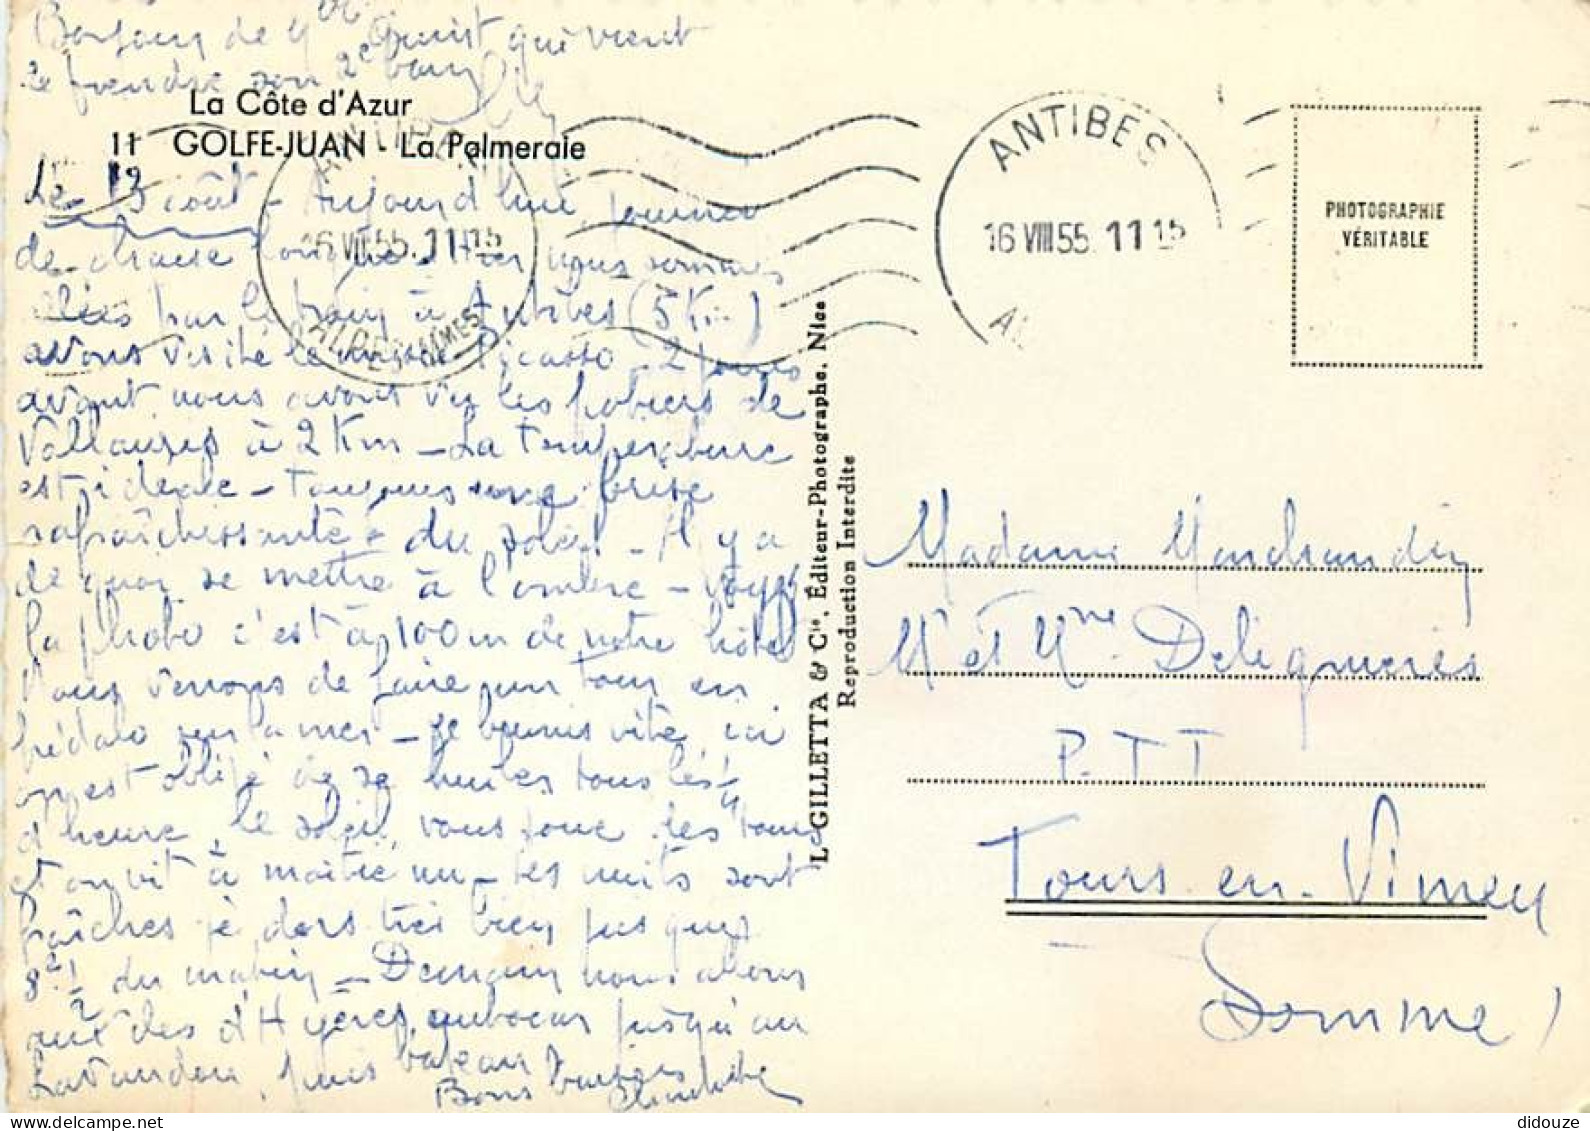 Bonjour de Mr Quint qui vient
de prendre son 2e bain
La Côte d'Azur
11 GOLFE-JUAN - La Palmeraie
Le 15 août - Aujourd'hui journée
de chaise longue - Hier nous sommes
allés par le train à Antibes (5 Km)
avons visité le musée Picasso - 2 jours
avant nous avons vu les potiers de
Vallauris à 2 Km - La température
est idéale - Toujours une brise
rafraîchissante - du soleil - Il y a
de quoi se mettre à l'ombre - Voyez
la photo c'est à 100 m de notre hôtel
Nous venons de faire un tour en
pédalo sur la mer - Je brunis vite, ici
on est obligé de se huiler tous les 1/4
d'heure, le soleil vous joue des tours
et on vit à moitié nu - Les nuits sont
fraîches je dors très bien jusque
8h 1/2 du matin - Demain nous allons
aux îles d'Hyères, en autocar jusqu'au
Lavandou, puis bateau
Bons baisers
ANTIBES
16 VIII 55. 11 15
ALPES-MMES
ANTIBES
16 VIII 55. 11 15
AL
PHOTOGRAPHIE
VÉRITABLE
L. GILLETTA & Cie, Éditeur-Photographe, Nice
Reproduction Interdite
Madame Marchandin
Mr et Mme Delignières
P.T.T
Tours-en-Vimeu
Somme
didouze